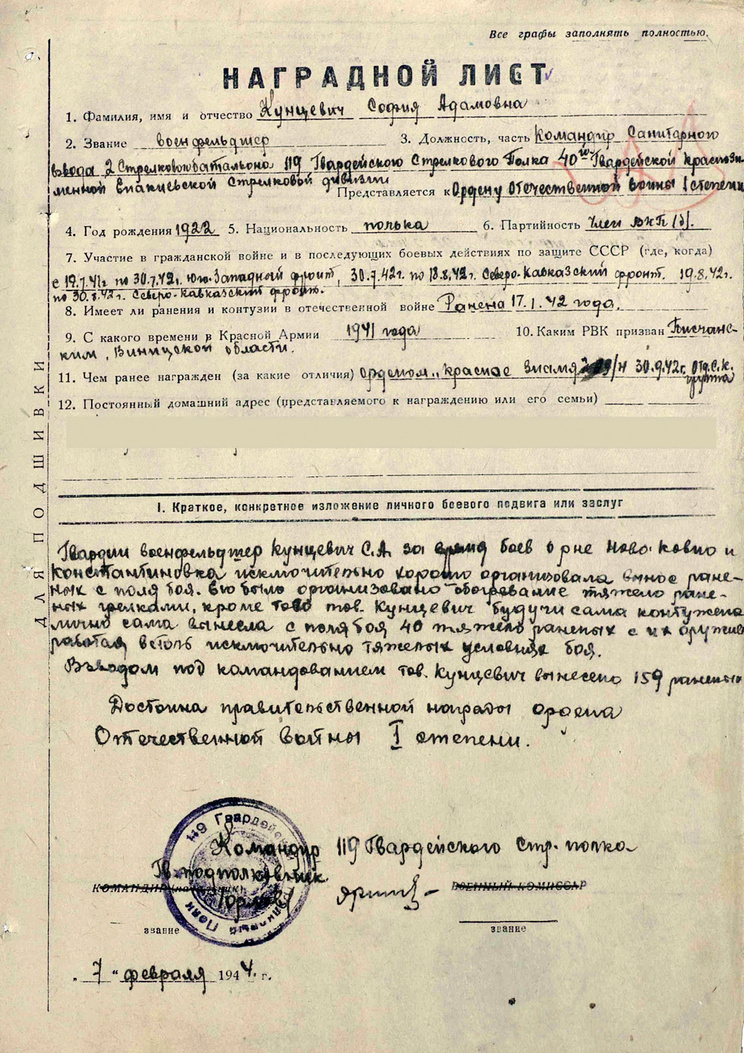 Все графы заполнять полностью.
НАГРАДНОЙ ЛИСТ
1. Фамилия, имя и отчество Кунцевич София Адамовна
2. Звание военфельдшер 3. Должность, часть Командир Санитарного
взвода 2 Стрелкового батальона 119 Гвардейского Стрелкового Полка 40ой Гвардейской краснозна-
менной Енакиевской Стрелковой дивизии
Представляется к Ордену Отечественной войны 1 степени
4. Год рождения 1922 5. Национальность полька 6. Партийность член ВКП(б).
7. Участие в гражданской войне и в последующих боевых действиях по защите СССР (где, когда)
с 19.7.41г. по 30.7.42г. Юго-Западный фронт, 30.7.42г. по 18.8.42г. Северо-Кавказский фронт. 19.8.42г.
по 30.8.42г. Северо-кавказский фронт.
8. Имеет ли ранения и контузии в отечественной войне Ранена 17.1.42 года.
9. С какого времени в Красной Армии 1941 года 10. Каким РВК призван Песчанс-
ким, Виницской области.
11. Чем ранее награжден (за какие отличия) орденом „красное знамя /н 30.9.42г. Отд.С.К.
группа
12. Постоянный домашний адрес (представляемого к награждению или его семьи)
ДЛЯ ПОДШИВКИ
I. Краткое, конкретное изложение личного боевого подвига или заслуг
Гвардии военфельдшер Кунцевич С.А. за время боев в р-не Ново-Ковно и
Константиновка исключительно хорошо организовала вынос ране-
ных с поля боя. Ею было организовано обогревание тяжело ране-
ных грелками, кроме того тов. Кунцевич будучи сама контужена
лично сама вынесла с поля боя 40 тяжело раненых с их оружием
работая в столь исключительно тяжелых условиях боя.
Взводом под командованием тов. Кунцевич вынесено 159 раненых
Достойна правительственной награды ордена
Отечественной войны I степени.
119 Гвардейский
Полк
Командир 119 Гвардейского Стр. полка
Гв. подполковник
КОМАНДИР ВОЕННЫЙ КОМИССАР
звание звание
„7“ февраля 1944 г.